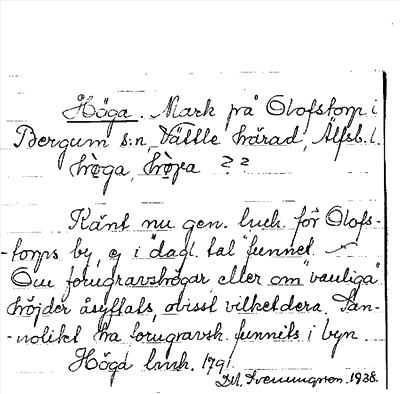 Höga. Mark på Olofstorp i
Bergum s:n, Vättle härad, Älfsb. l.
hö̀ga, hö̀ja ? ?
Känt nu gen. lmk. för Olofs-
-torps by, ej i "dagl. tal" funnet.
Om forngravshögar, eller om "vanliga"
höjder åsyftats, ovisst vilketdera. San-
-nolikt ha forngravsk. funnits i byn
Höga lmk. 1791
1938.